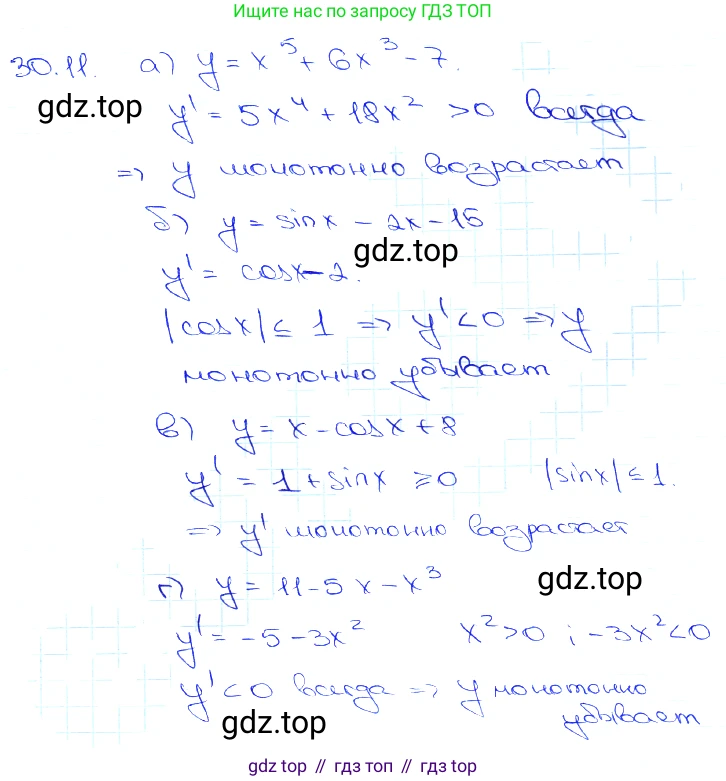 Ищите нас по запросу ГДЗ ТОП
30.11. а) y = x⁵ + 6x³ - 7.
gdz.top
y' = 5x⁴ + 18x² >0 всегда
=> y монотонно возрастает
б) y = sinx - 2x - 15
gdz.top
y' = cosx - 2.
|cosx| ≤ 1 => y' < 0 => y
монотонно убывает
в) y = x - cosx + 8
y' = 1 + sinx ≥ 0 |sinx| ≤ 1.
=> y' монотонно возрастает
г) y = 11 - 5x - x³
gdz.top
y' = -5 - 3x² x² > 0 ; -3x² < 0
y' < 0 всегда => y монотонно
убывает
gdz.top
gdz top // гдз топ // гдз top